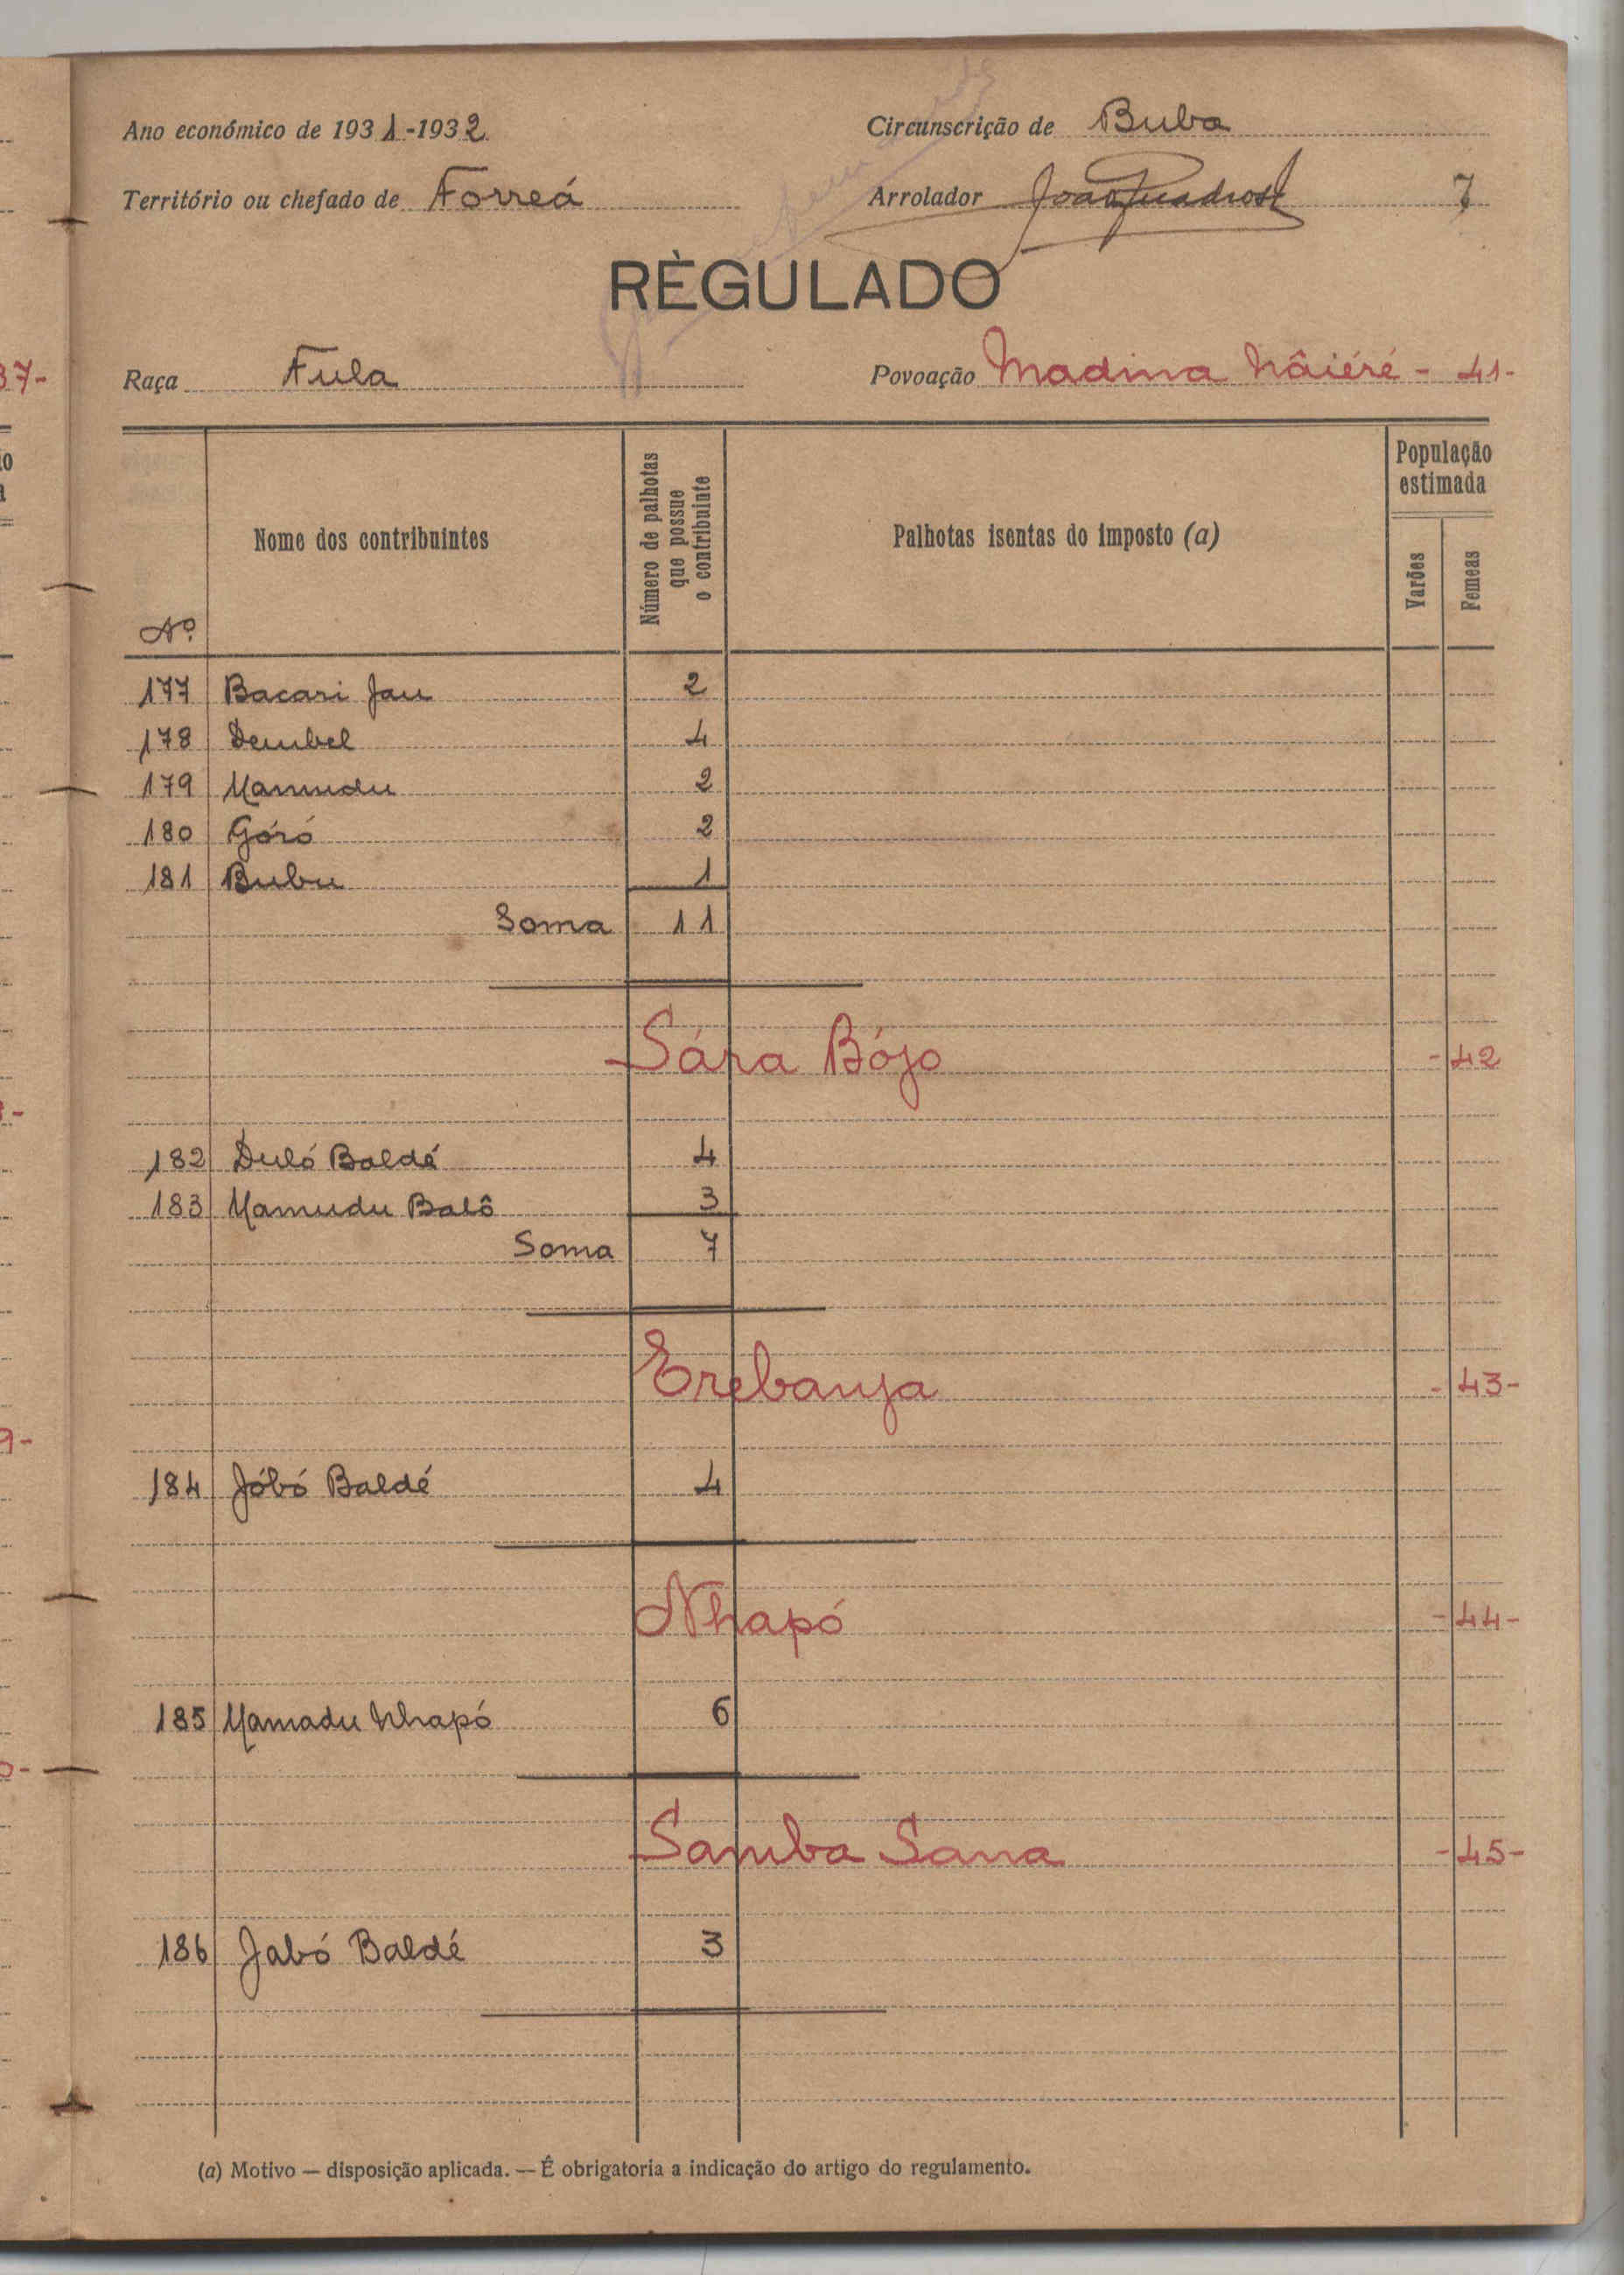 Ano económico de 1931-1932 Circunscrição de Buba
Território ou chefado de Forreá Arrolador João Quadros 7
RÈGULADO
Raça Fula Povoação Madina Nâiéré - 41-
Nº Nome dos contribuintes Número de palhotas que possue o contribuinte Palhotas isentas do imposto (a) População estimada Varões Femeas
177 Bacari Jau 2
178 Dembel 4
179 Mamudu 2
180 Góró 2
181 Bubu 1
Soma 11
Sára Bójo - 42
182 Duló Baldé 4
183 Mamudu Balô 3
Soma 7
Erebanja - 43-
184 Jóbó Baldé 4
Nhapó - 44-
185 Mamadu Nhapó 6
Samba Sana - 45-
186 Jabó Baldé 3
(a) Motivo — disposição aplicada. — É obrigatoria a indicação do artigo do regulamento.